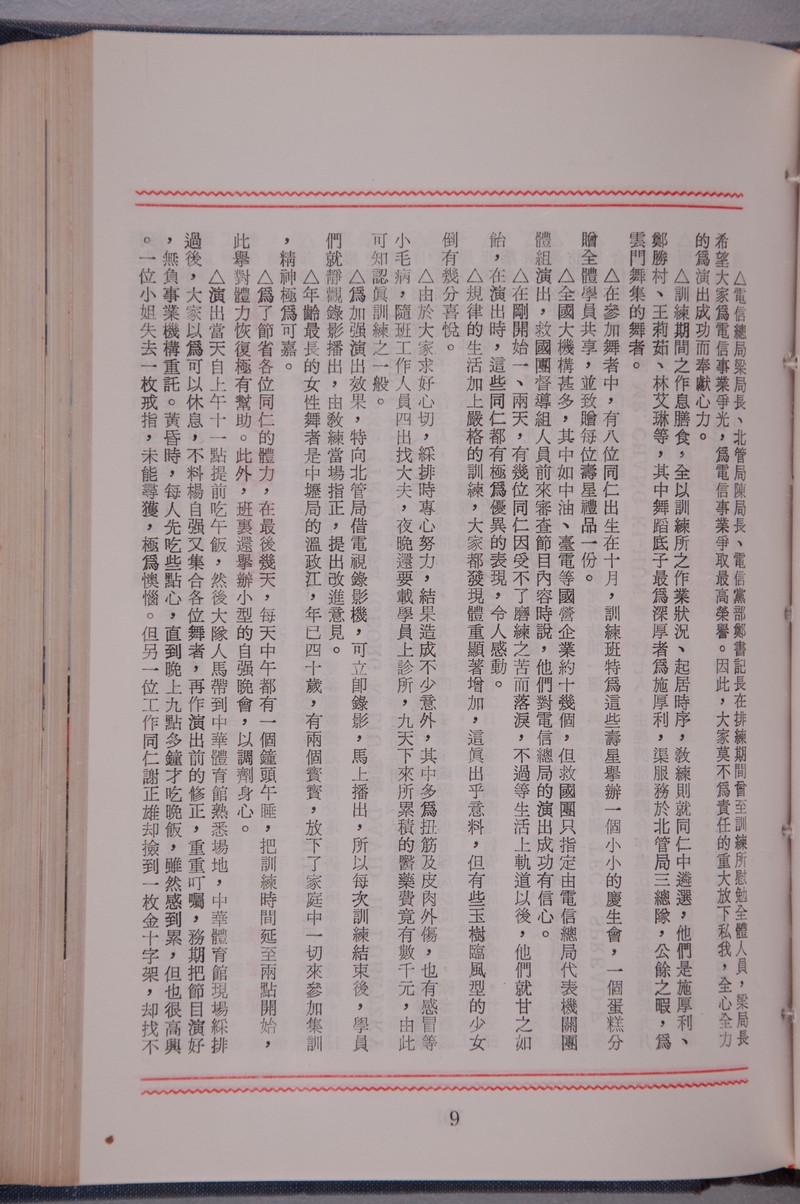 △電信總局梁局長、北管局陳局長、電信黨部鄭書記長在排練期間曾至訓練所慰勉全體人員,梁局長
希望大家爲電信事業爭光,爲電信事業爭取最高榮譽。因此,大家莫不爲責任的重大放下私我,全心全力
的爲演出成功而奉獻心力。
△訓練期間之作息膳食,全以訓練所之作業狀況、起居時序,敎練則就同仁中遴選,他們是施厚利、
鄭勝村、王莉茹、林艾琳等,其中舞蹈底子最爲深厚者爲施厚利,渠服務於北管局三總隊,公餘之暇,爲
雲門舞集的舞者。
△在參加舞者中,有八位同仁出生在十月,訓練班特爲這些壽星舉辦一個小小的慶生會,一個蛋糕分
贈全體學員共享,並致贈每位壽星禮品一份。
△全國大機構甚多,其中如中油、臺電等國營企業約十幾個,但救國團只指定由電信總局代表機關團
體組演出,救國團督導組人員前來審查節目內容時說,他們對電信總局的演出成功有信心。
△在剛開始一、兩天,有幾位同仁因受不了磨練之苦而落淚,不過等生活上軌道以後,他們就甘之如
飴,在演出時,這些同仁都有極爲優異的表現,令人感動。
△規律的生活加上嚴格的訓練,大家都發現體重顯著增加,這眞出乎意料,但有些玉樹臨風型的少女
倒有幾分喜悅。
△由於大家求好心切,綵排時專心努力,結果造成不少意外,其中多爲扭筋及皮肉外傷,也有感冒等
小毛病,隨班工作人員四出找大夫,夜晚還要載學員上診所,九天下來所累積的醫藥費竟有數千元,由此
可知認眞訓練之一般。
△爲加强演出效果,特向北管局借電視錄影機,可立卽錄影,馬上播出,所以每次訓練結束後,學員
們就靜觀錄影播出,由敎練當場指正,提出改進意見。
△年齡最長的女性舞者是中壢局的溫政江,年已四十歲,有兩個寶寶,放下了家庭中一切來參加集訓
,精神極爲可嘉。
△爲了節省各位同仁的體力,在最後幾天,每天中午都有一個鐘頭午睡,把訓練時間延至兩點開始,
此舉對體力恢復極有幫助。此外,班裏還舉辦小型的自强晚會,以調劑身心。
△演出當天自上午十一點提前吃午飯,然後大隊人馬帶到中華體育館熟悉場地,中華體育館現場綵排
過後,大家以爲可以休息,不料楊自强又集合各位舞者,再作演出前的修正,重重叮囑,務期把節目演好
,無負事業機構重託。黃昏時,每人先吃些點心,直到晚上九點多鐘才吃晚飯,雖然感到累,但也很高興
。一位小姐失去一枚戒指,未能尋獲,極爲懊惱。但另一位工作同仁謝正雄却撿到一枚金十字架,却找不
9